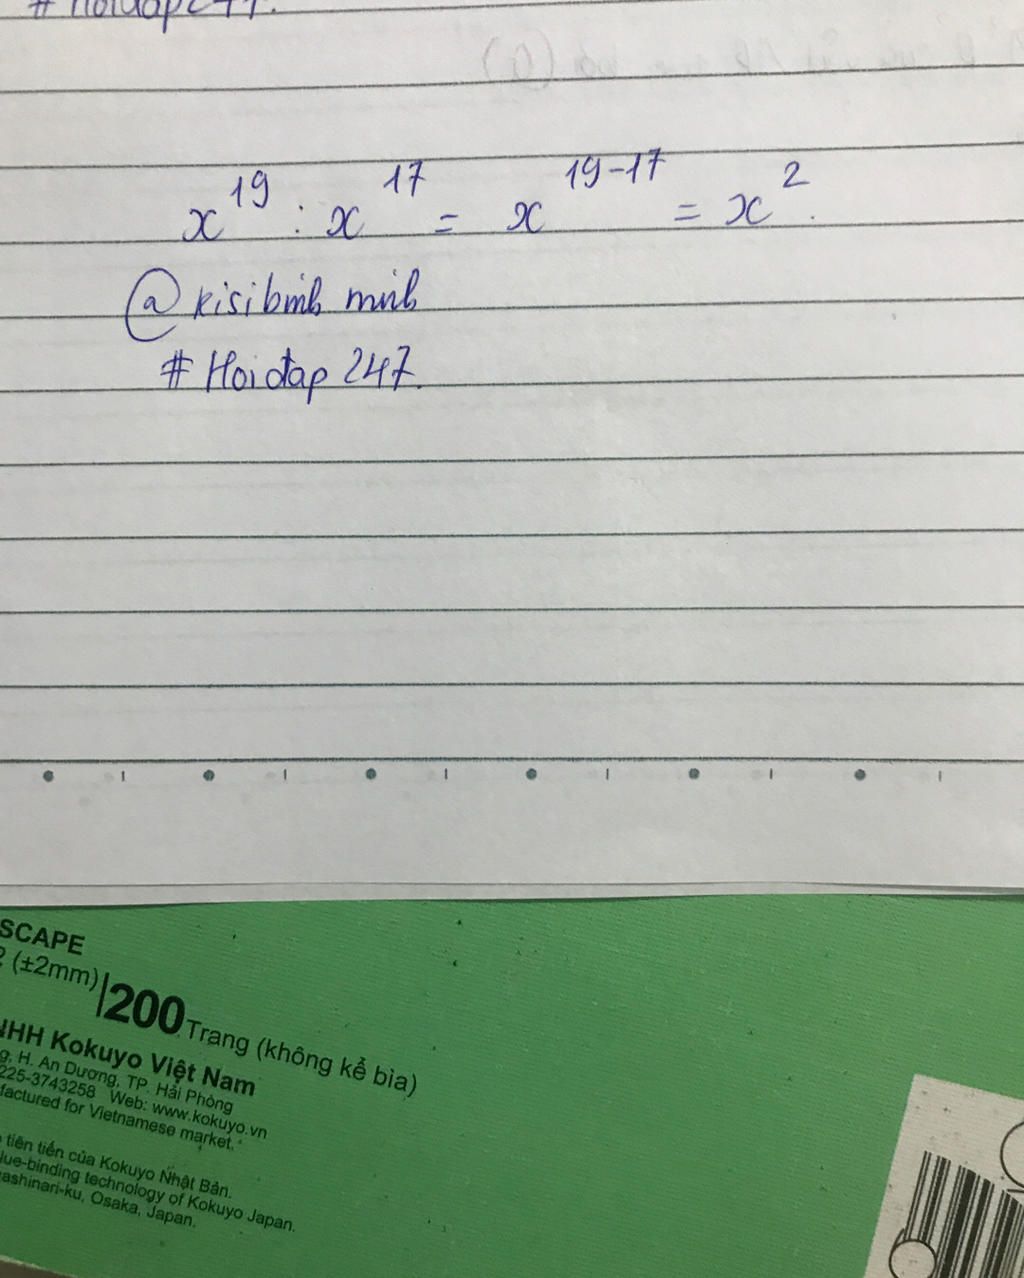 x^19 : x^17 = x^19-17 = x^2.
@kisibinh minh
# Hoidap 247.
SCAPE
(±2mm) 200 Trang (không kể bìa)
NHH Kokuyo Việt Nam
g, H. An Dương, TP. Hải Phòng
225-3743258 Web: www.kokuyo.vn
factured for Vietnamese market.
tiên tiến của Kokuyo Nhật Bản.
lue-binding technology of Kokuyo Japan.
ashinari-ku, Osaka, Japan.